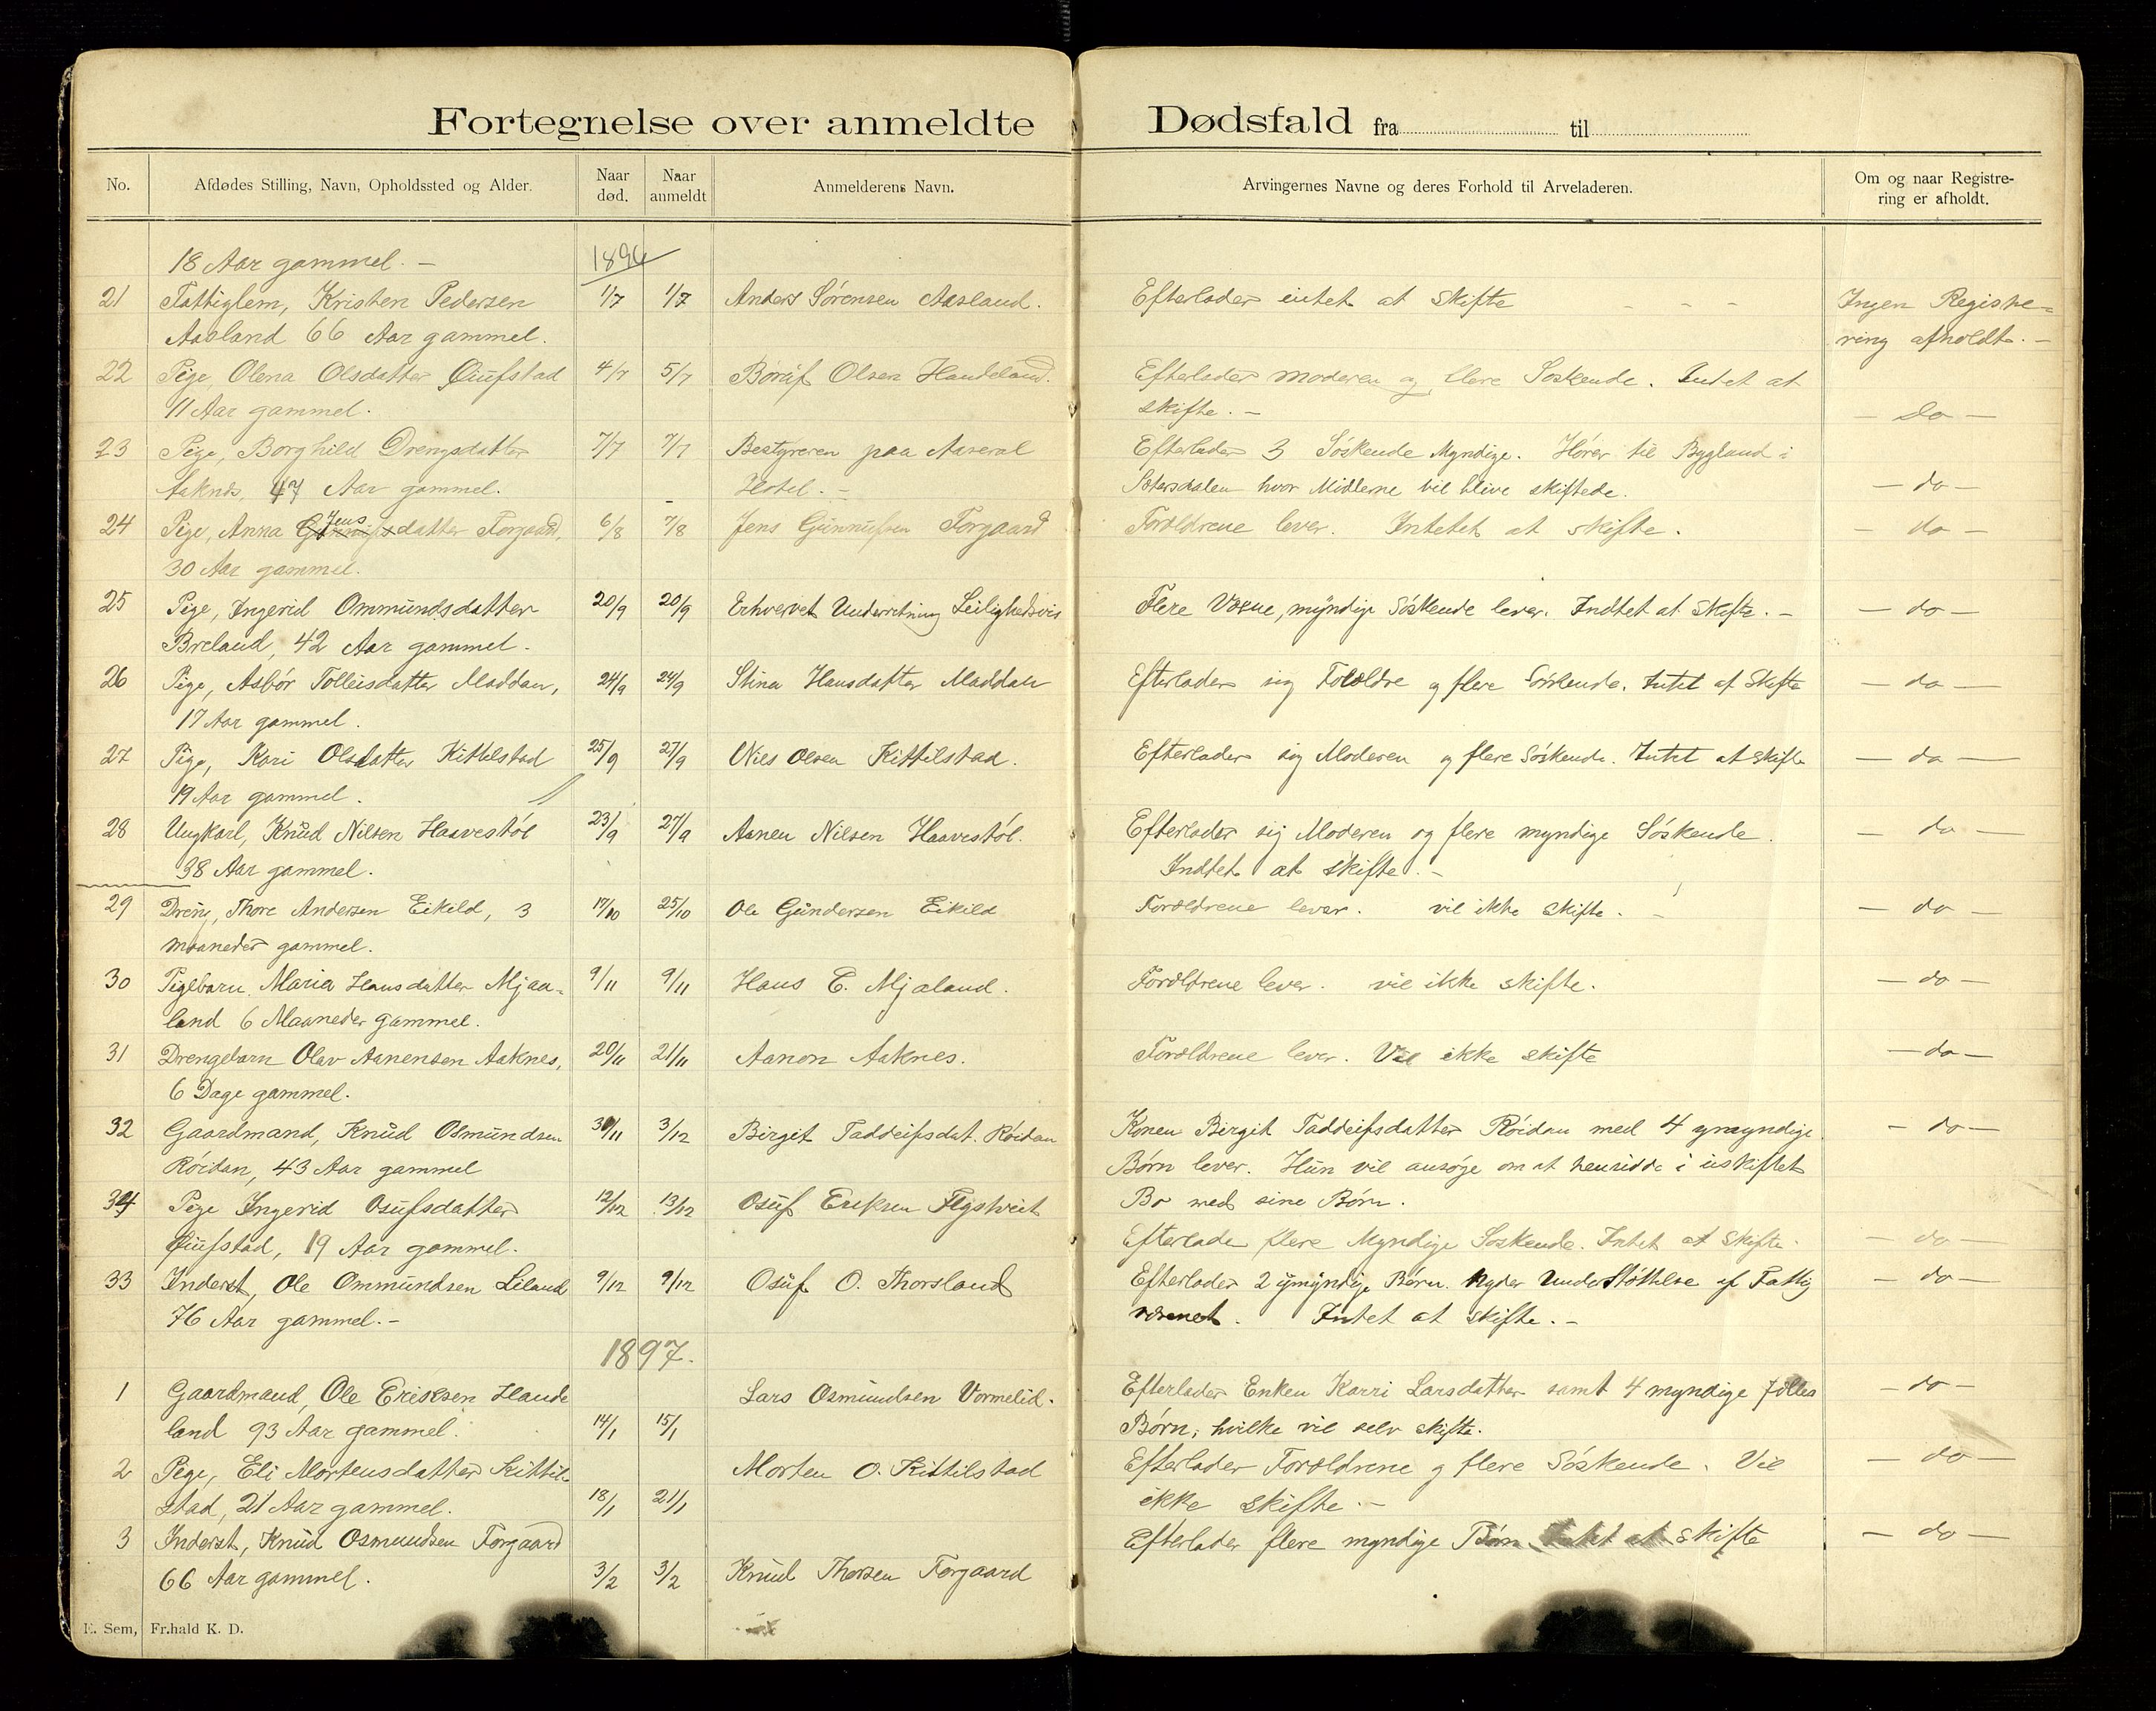 Fortegnelse over anmeldte Dødsfald fra til
No. Afdødes Stilling, Navn, Opholdssted og Alder. Naar død. Naar anmeldt Anmelderens Navn. Arvingernes Navne og deres Forhold til Arveladeren. Om og naar Registrering er afholdt.
18 Aar gammel. – 1896
21 Fattiglem, Kristen Pedersen 1/7 1/7 Anders Sørensen Aasland. Efterlader intet at skifte - - - Ingen Registre=
Aasland 66 Aar gammel. ring afholdt. –
22 Pige, Olena Olsdatter Quifstad 4/7 5/7 Olsen Haudeland. Efterlader moderen og flere Søskende. Intet at
11 Aar gammel. skifte. – – do –
23 Pige, Borghild Drengsdatter 7/7 7/7 Bestyreren paa Aaseral Efterlader 3 Søskende Myndige. Hører til Bygland i
Aaknes, 47 Aar gammel. Hotel. – Sætersdalen hvor Midlerne vil blive skiftede. – do –
24 Pige, Anna Jensdatter Forgaard, 6/8 7/8 Jens Gunnufsen Forgaard Forældrene lever. Intetet at skifte. – do –
30 Aar gammel.
25 Pige, Ingerid Ommundsdatter 20/9 20/9 Erhvervet Underretning Leilighedsvis Flere Voxne, myndige Søskende lever. Indtet at skifte. – – do –
Breland, 42 Aar gammel.
26 Pige, Asbør Tolleisdatter Maddan, 24/9 24/9 Stina Hansdatter Maddan Efterlader sig Forældre og flere Søskende. Intet at skifte – do –
17 Aar gammel.
27 Pige, Kari Olsdatter Kittelstad 25/9 27/9 Nils Olsen Kittilstad. Efterlader sig Moderen og flere Søskende. Intet at skifte – do –
19 Aar gammel.
28 Ungkarl, Knud Nilsen Haavestøl 23/9 27/9 Aanen Nilsen Haavestøl. Efterlader sig Moderen og flere myndige Søskende. – do –
38 Aar gammel. Indtet at skifte. –
29 Dreng, Thore Andersen Eikild, 3 17/10 25/10 Ole Gundersen Eikild Forældrene lever. vil ikke skifte. – – do –
maaneder gammel.
30 Pigebarn Maria Hansdatter Mjaa- 9/11 9/11 Hans C. Mjaland. Forældrene lever. vil ikke skifte. – do –
land 6 Maaneder gammel.
31 Drengebarn Olav Aanensen Aaknes, 20/11 21/11 Aanon Aaknes. Forældrene lever. Vil ikke skifte – do –
6 Dage gammel.
32 Gaardmand, Knud Osmundsen 30/11 3/12 Birgit Taddeifsdat. Røidan Konen Birgit Taddeifsdatter Røidan med 4 umyndige – do –
Røidan, 43 Aar gammel Børn lever. Hun vil ansøge om at hensidde i uskiftet
34 Pige Ingerid Osufsdatter 12/12 13/12 Osuf Eriksen Bo med sine Børn.
Quifstad, 19 Aar gammel. Efterlader flere Myndige Søskende. Intet at skifte. – do –
33 Inderst, Ole Ommundsen Liland 9/12 9/12 Osuf O. Thorsland Efterlader 2 umyndige Børn. Nyder Understøttelse af Fattig – do –
76 Aar gammel. – væsenet. Intet at skifte. –
1897.
1 Gaardmand, Ole Eriksen Haude Lars Osmundsen Vormelid. Efterlader Enken Karri Larsdatter samt 4 myndige fælles – do –
land 93 Aar gammel. 14/1 15/1 Børn, hvilke vil selv skifte.
2 Pige, Eli Mortensdatter Kittil Morten O. Kittilstad Efterlader Forældrene og flere Søskende. Vil – do –
stad, 21 Aar gammel. 18/1 21/1 ikke skifte. –
3 Inderst, Knud Osmundsen Forgaard Efterlader flere myndige Børn Intet at skifte – do –
66 Aar gammel. 3/2 3/2 Knud Thorsen Forgaard
E. Sem, Fr.hald K. D.